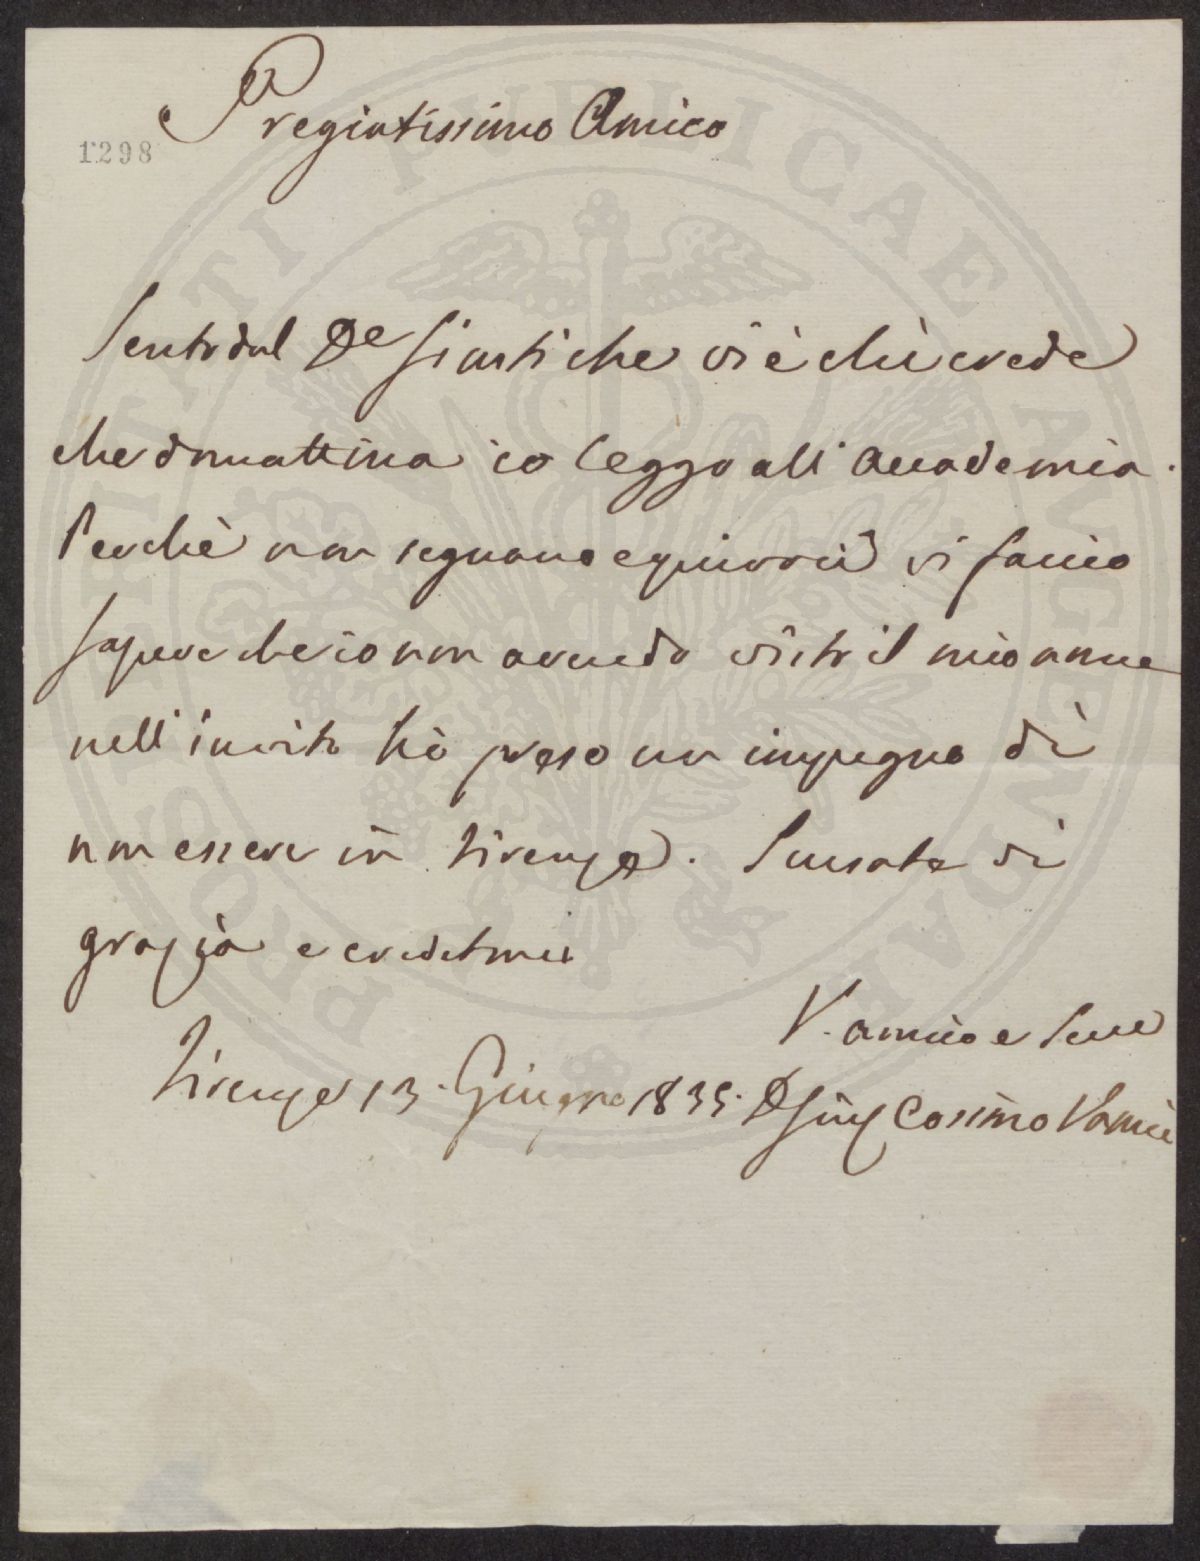 Pregiatissimo Amico
1298
Sento dal De Giusti che vi è chi crede
che domattina io leggo all'Accademia.
Perchè non seguano equivoci vi faccio
sapere che io non avendo visto il mio nome
nell'invito hò preso un impegno di
non essere in Firenze. Scusate di
grazia e credetemi
V. amico e Serv
Firenze 13. Giugno 1835. Cosimo Vanni
PROSPERITATI PVBLICAE AVGENDAE